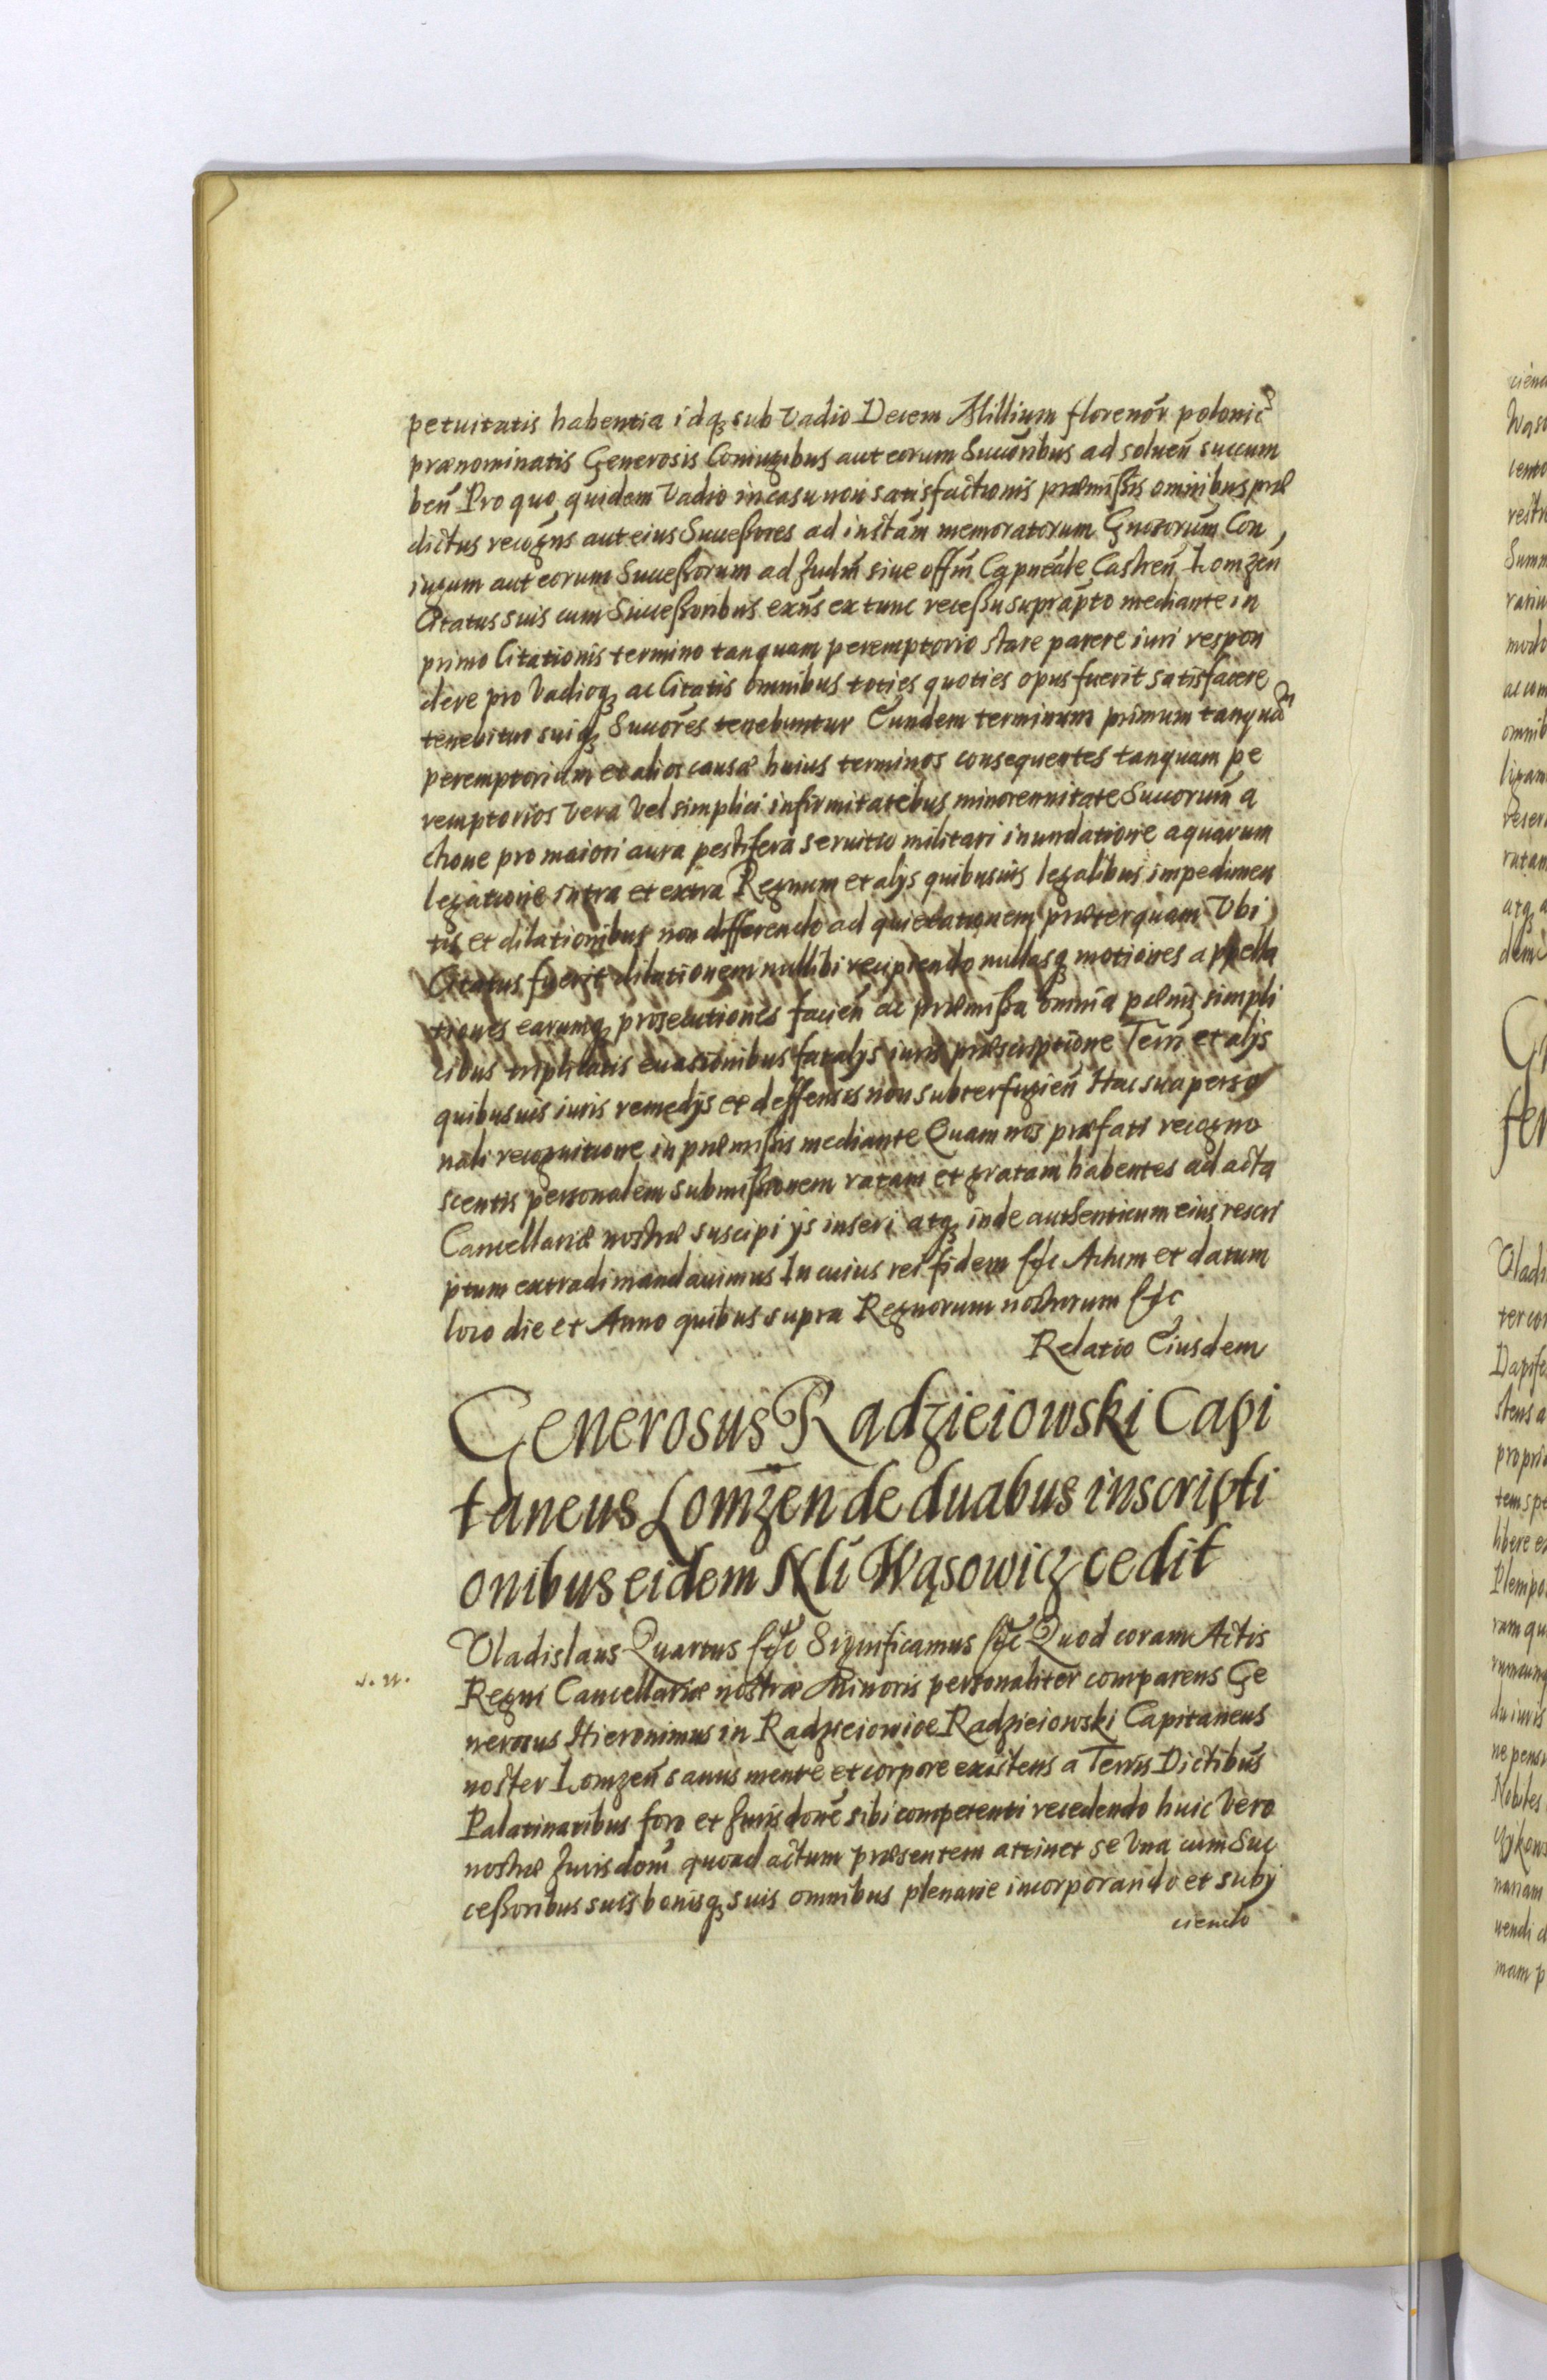 petuitatis habentia idq₃ sub vadio Decem Millium florenor̃ polonic̃
prænominatis Generosis Coniugibus aut eorum Succõribus ad soluen̄ succum
ben̄ Pro quo quidem Vadio in casu non satisfactionis præmißis omnibus præ
dictus recogn̄s aut eius Succeßores ad instām memoratorum Gnosorum Con
iugum aut eorum Succeßorum ad Judm̄ siue offm̄ Capneāle Castren̄ Łomzen̄
Citatus suis cum Succeßoribus exn̄s ex tunc receßu suprap̄to mediante in
primo Citationis termino tanquam peremptorio stare parere iuri respon
dere pro Vadioq₃ ac Citatis omnibus toties quoties opus fuerit satisfacere
tenebitur suiq₃ Succōres tenebuntur Eundem terminum primum tanquā
peremptorium et alios causæ huius terminos consequentes tanquam pe
remptorios vera vel simplici infirmitatibus minorennitate Succorum a
ctione pro maiori aura pestifera seruitio militari inundatione aquarum
legatione intra et extra Regnum et alijs quibusuis legalibus impedimen
tis et dilationibus non differendo ad quietationem præterquam Vbi
Citatus fuerit dilationem nullibi recipiendo nullasq₃ motiones appella
tiones earumq₃ prosecutiones facien̄ ac præmißa omnia pænis simpli
cibus triplicatis euasionibus fatalijs iuris præscriptione Terr̄ et alijs
quibusuis iuris remedijs et deffensis non subterfugien̄ Hac sua perso
nali recognitione in præmißis mediante Quam nos præfati recogno
scentis personalem submißionem ratam et gratam habentes ad acta
Cancellariæ nostræ suscipi ijs inseri atq₃ inde authenticum eius rescri
ptum extradi mandauimus In cuius rei fidem etc Actum et datum
loco die et Anno quibus supra Regnorum nostrorum etc
Relatio Eiusdem
Generosus Radzieiowski Capi
taneus Łomzen de duabus inscripti
onibus eidem Nli Wąsowicz cedit
Vladislaus Quartus etc Significamus etc Quod coram Actis
Regni Cancellariæ nostræ Minoris personaliter comparens Ge
nerosus Hieronimus in Radzieiowice Radzieiowski Capitaneus
noster Łomzen̄ sanus mente et corpore existens a Terris Dictibus
Palatinatibus foro et Jurisdone sibi competenti recedendo huic vero
nostræ Jurisdoni quoad actum præsentem attinet se vna cum Suc
ceßoribus suis bonisq₃ suis omnibus plenarie incorporando et subij
ciendo